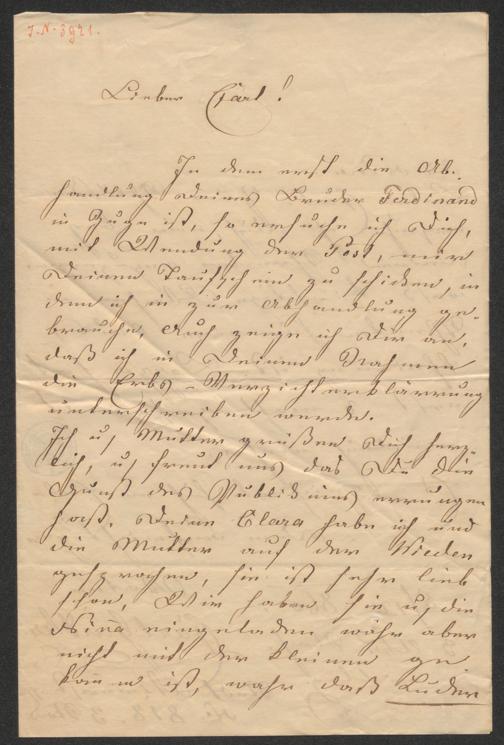 J.N. 3921.
Lieber Carl!
In dem erst die Ab-
handlung Deines Bruder Ferdinand
in Zuge ist, so ersuche ich Dich,
mit Wendung der Post, mir
Deinen Taufschein zu schicken, in
dem ich in zur Abhandlung ge-
brauche, Auch zeige ich Dir an,
daß ich in Deinen Nahmen
die Erbs-Verzichterklärrung
unterschreiben werde.
Ich u, Mutter grüßen Dich herz-
lich, u, freut uns das Du die
Gunst des Publikums errungen
hast. Deine Clara habe ich und
die Mutter auf der Wieden
gesprochen, sie ist sehr lieb
schon, Wir haben sie u, die
Nina eingeladen währ aber
nicht mit der kleinen ge
kom̅en ist, wahr daß Luder